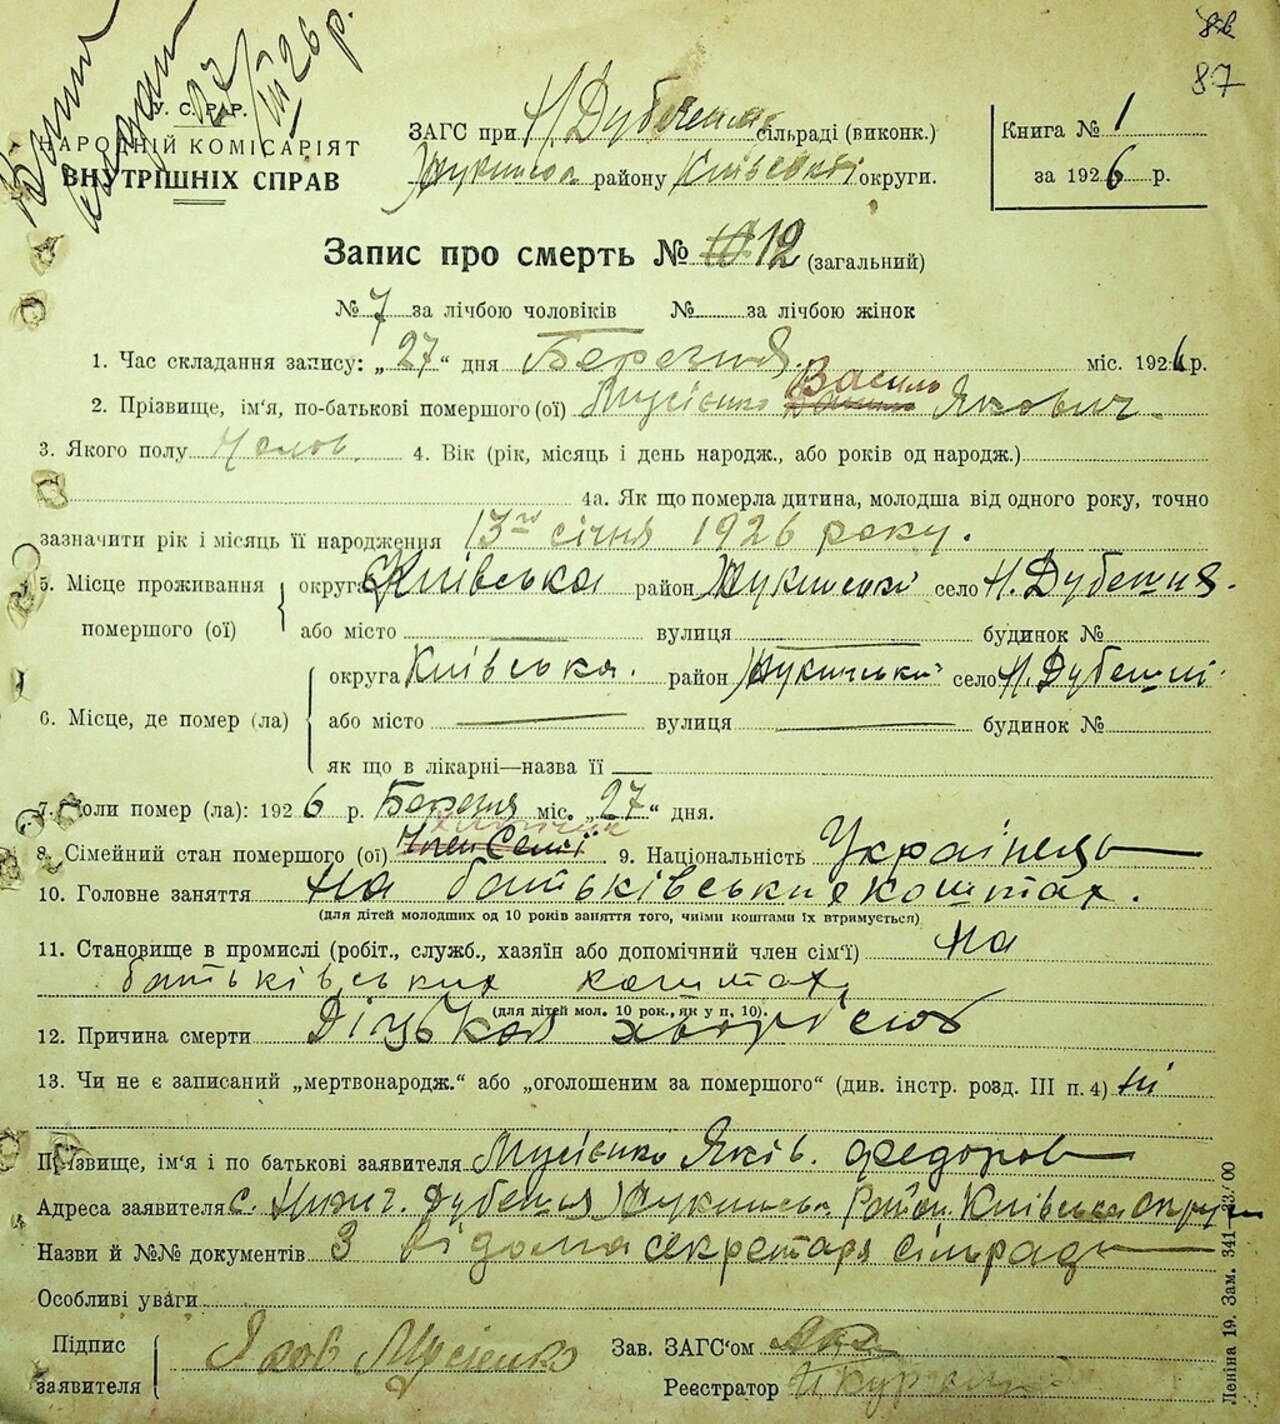 86
87
27/III 26 р.
У. С. Р. Р.
НАРОДНІЙ КОМІСАРІЯТ
ВНУТРІШНІХ СПРАВ
ЗАГС при Н/Дубечанс сільраді (виконк.)
Жукинсь району Київської округи.
Книга № 1
за 1926 р.
Запис про смерть № 10 12 (загальний)
№ 7 за лічбою чоловіків № за лічбою жінок
1. Час складання запису: „27“ дня Березня міс. 1926 р.
Василь
2. Прізвище, ім'я, по-батькові помершого (ої) Мусієнко Якович.
3. Якого полу Чолов. 4. Вік (рік, місяць і день народж., або років од народж.)
4а. Як що померла дитина, молодша від одного року, точно
зазначити рік і місяць її народження 13го січня 1926 року.
5. Місце проживання округа Київська район Жукинськ село Н. Дубечня.
помершого (ої) або місто вулиця будинок №
округа Київська. район Жукинськ село Н. Дубечні
6. Місце, де помер (ла) або місто вулиця будинок №
як що в лікарні—назва її
7. Коли помер (ла): 1926 р. Березня міс. „27“ дня.
8. Сімейний стан помершого (ої) Член Семї 9. Національність Українець
10. Головне заняття На батьківських коштах.
(для дітей молодших од 10 років заняття того, чиїми коштами їх втримується)
11. Становище в промислі (робіт., служб., хазяїн або допомічний член сім'ї) на
батьківських коштах
(для дітей мол. 10 рок., як у п. 10).
12. Причина смерти
13. Чи не є записаний „мертвонародж.“ або „оголошеним за помершого“ (див. інстр. розд. III п. 4) Ні
Прізвище, ім'я і по батькові заявителя Мусієнко Яків. Федоров
Адреса заявителя с. Нижч. Дубечня Жукинськ Район Київська округ
Назви й №№ документів З відома секретаря сільради
Особливі уваги
Підпис
заявителя Яков Мусіенко
Зав. ЗАГС'ом
Реєстратор
Леніна 19. Зам. 341—23/00